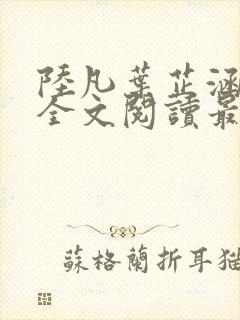 陸凡葉芷涵
全文閱讀最
蘇格蘭折耳貓